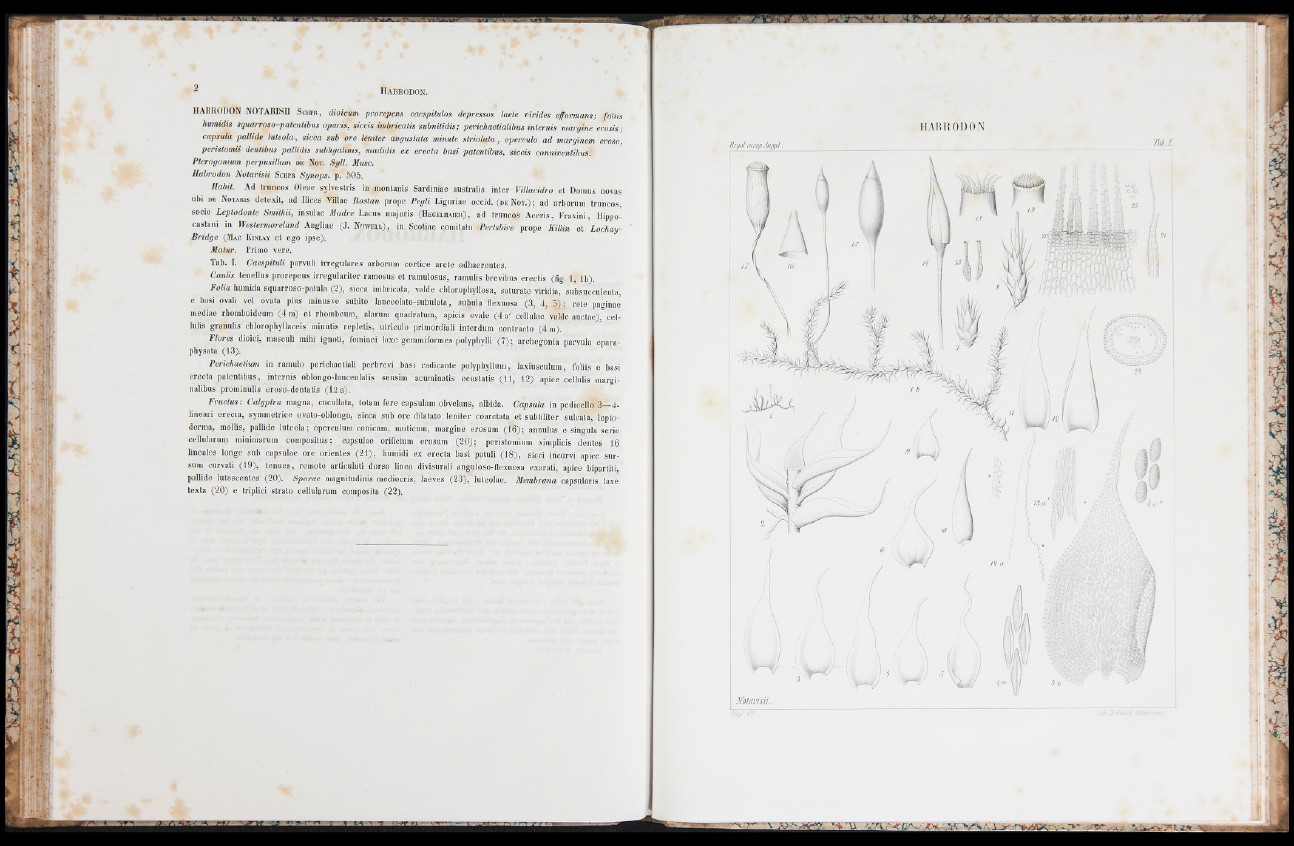 2
HABRODON.
HABRODON NOTARISII SCHPR, dioicum prorepens caespitulos depressos laete virides efformans; foliis
humidis squarroso-patentibus opacis, siccis imbricatis subnitidis; perichaetialibus internis margine erosis;
capsula pallide luteola, sicca sub ore leniter angustata minute striolata, operculo ad marginem eroso,
peristomii dentibus pallidis subhyalinis, madidis ex erecta basi patentibus, siccis conniventibus.
Pterogonium perpusillum DE NOT. Syll. Musc.
Habrodon Notarisii SCHPR Synops. p. 505.
Habit. Ad truncos Oleae sylvestris in montanis Sardiniae australis inter Villacidro et Domus novas
ubi DE NOTARIS detexit, ad Ilices Villae Rostan prope Pegli Liguriae occid. (DE NOT.); ad arborum truncos,
socio Leptodonte Smithii, insulae Madre Lacus majoris (HECKENHAUER), ad truncos Aceris, Fraxini, Hippo-
castani in Westermoreland Angliae (J. NOWELL), in Scotiae comitatu Pertshire prope Killin et Lochay-
Bridge (MAC KINLAY et ego ipse).
Matur. Primo vere.
Tab. I. Caespituli parvuli irregulares arborum cortice arcte adhaerentes.
Caulis tenellus prorepens irregulariter ramosus et ramulosus, ramulis brevibus erectis (fig. 1, 1b).
Folia humida squarroso-patula (2), sicca imbricata, valde chlorophyllosa, saturate viridia, subsucculenta,
e basi ovali vel ovata plus minusve subito lanceolato-subulata, subula flexuosa (3, 4, 5); rete paginae
mediae rhomboideum (4 m) et rhombeum, alarum quadratum, apicis ovale (4 a' cellulae valde auctae), cel-
lulis granulis chlorophyllaceis minutis repletis, utriculo primordiali interdum contracto (4 m).
Flores dioici, masculi mihi ignoti, feminei laxe gemmiformes polyphylli (7); archegonia parvula epara-
physata (13).
Perichaetium in ramulo perichaetiali perbrevi basi radicante polyphyllum, laxiusculum, foliis e basi
erecta patentibus, internis oblongo-lanceolatis sensim acuminatis ecostatis (11, 12) apice cellulis margi-
nalibus prominulis eroso-dentatis (12 a).
Fructus: Calyptra magna, cucullata, totam fere capsulam obvelans, albida. Capsula in pedicello 3—4-
lineari erecta, symmetrice ovato-oblonga, sicca sub ore dilatato leniter coarctata et subtiliter sulcata, lepto-
derma, mollis, pallide luteola; operculum conicum, muticum, margine erosum (16); annulus e singula serie
cellularum minimarum compositus; capsulae orificium erosum (20); peristomium simplicis dentes 16
lineales longe sub capsulae ore orientes (21), humidi ex erecta basi patuli (18), sicci incurvi apice sur-
sum curvati (19), tenues, remote articulati dorso linea divisurali anguloso-flexuosa exarati, apice bipartiti,
pallide lutescentes (20). Sporae magnitudinis mediocris, laeves (23), luteolae. Membrana capsularis laxe
texta (20) e triplici strato cellularum composita (22).
HABRODON.
Bryol. europ. Suppl.
Tab. I.
15
16
17
14
13
18
19
20
23
21
8
7
22
1
1 b
11
12
9
2
10
6
12.a'
12.a
4.a'
3
4
5
4.m
Notarisii.